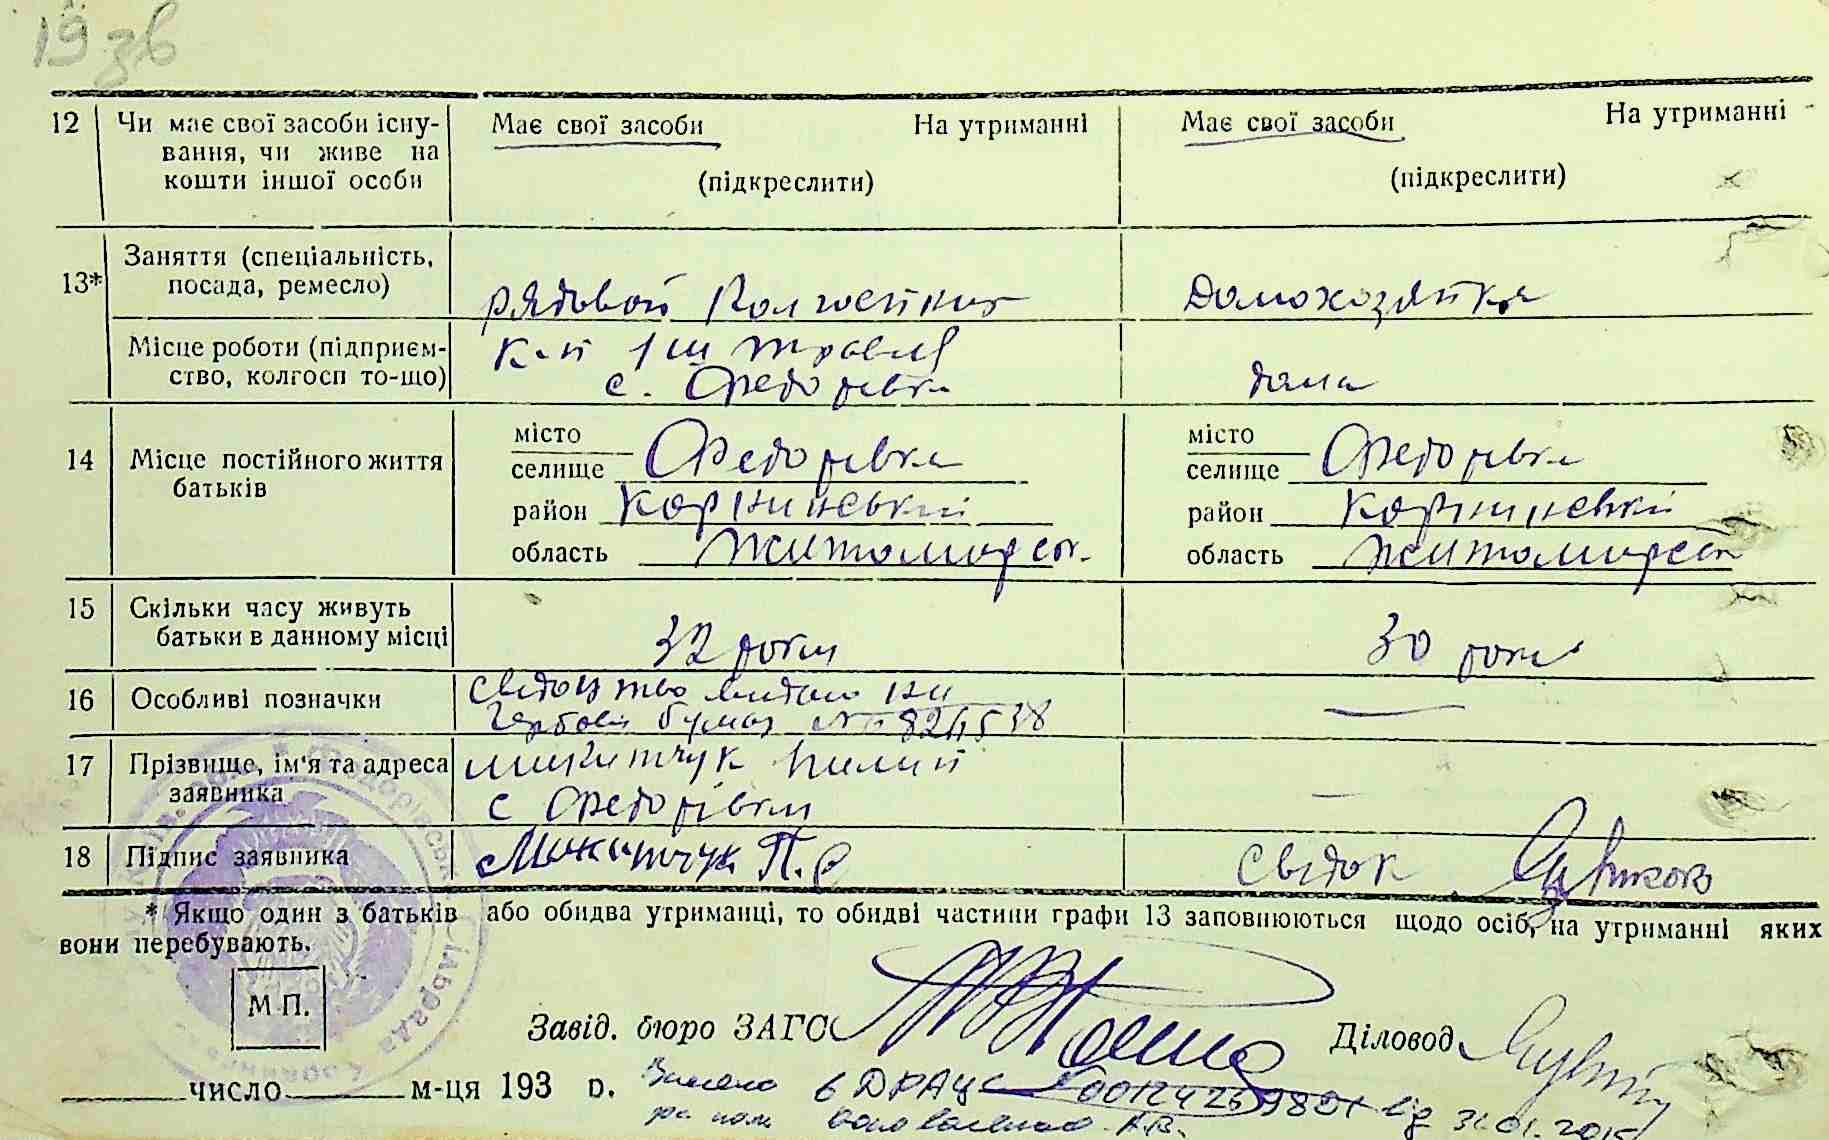 19 зв
12 Чи має свої засоби існу-вання, чи живе на кошти іншої особи
Має свої засоби На утриманні
(підкреслити)
Має свої засоби На утриманні
(підкреслити)
13* Заняття (спеціальність, посада, ремесло)
рядовой Колгоспник
домохозяйка
Місце роботи (підприєм-ство, колгосп то-що)
К-п 1 ш травня
с. Федорівка
дома
14 Місце постійного життя батьків
місто
селище Федорівка
район Корнинський
область Житомирськ.
місто
селище Федорівка
район Корнинський
область Житомирськ
15 Скільки часу живуть батьки в данному місці
32 роки
30 роки
16 Особливі позначки
Свідоцтво видано на
Гербовій бумаз №
17 Прізвище, ім'я та адреса заявника
Микитчук Пилип
с Федорівки
18 Підпис заявника
Микитчук П.
Свідок
* Якщо один з батьків або обидва утриманці, то обидві частини графи 13 заповнюються щодо осіб, на утриманні яких
вони перебувають.
М П.
Завід. бюро ЗАГС
Діловод
число м-ця 193 р.
в ДРАЦС від 31.01.2015
А.В.